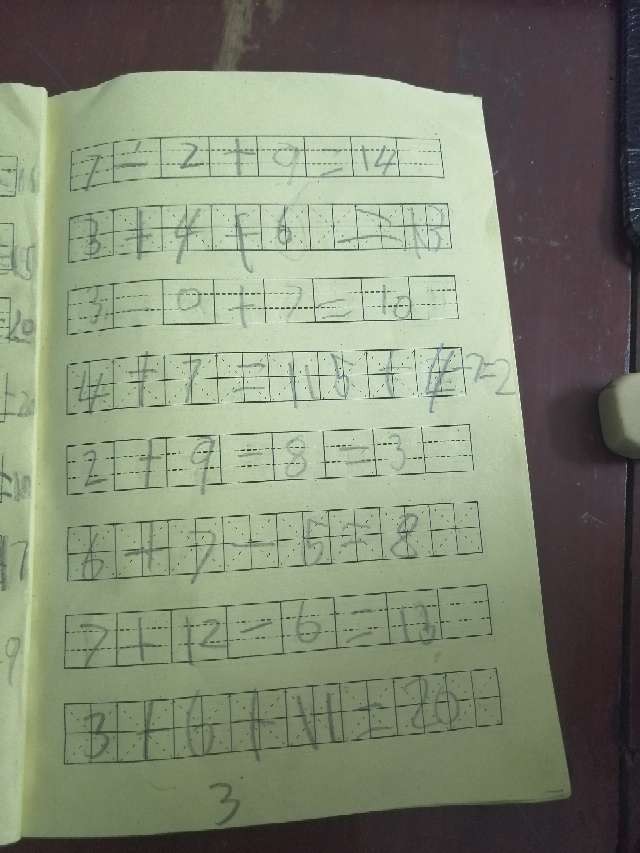 7-2+9=14
3+4+6=13
3-0+7=10
4+7=11
2+9-8=3
6+7-5=8
7+12-6=13
3+6+11=20
3